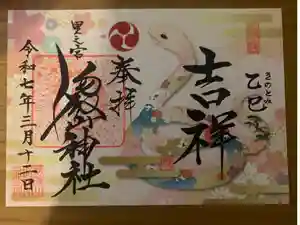 乙巳
きのとみ
吉祥
奉拝
里之宮
湯殿山神社
令和七年三月十二日